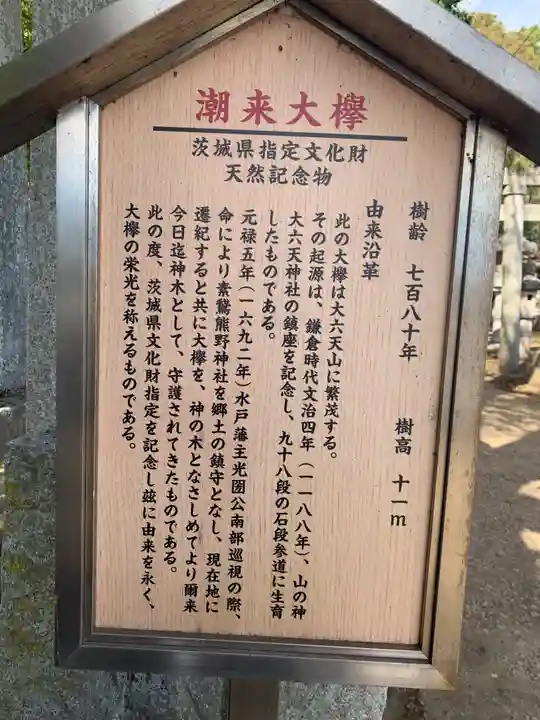 潮来大欅
茨城県指定文化財
天然記念物
樹齢 七百八十年 樹高 十一m
由来沿革
此の大欅は大六天山に繁茂する。
その起源は、鎌倉時代文治四年（一一八八年）、山の神
大六天神社の鎮座を記念し、九十八段の石段参道に生育
したものである。
元禄五年（一六九二年）水戸藩主光圀公南部巡視の際、
命により素鵞熊野神社を郷土の鎮守となし、現在地に
遷紀すると共に大欅を、神の木となさしめてより爾来
今日迄神木として、守護されてきたものである。
此の度、茨城県文化財指定を記念し玆に由来を永く、
大欅の栄光を称えるものである。